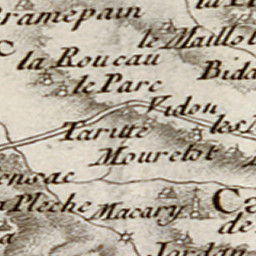 Bramepain
le Maillot
la Roucau
Bida
le Parc
Vidou
Taritte
les
Mourelot
ensac
Pleche
Macary
Ca
de
Jordan